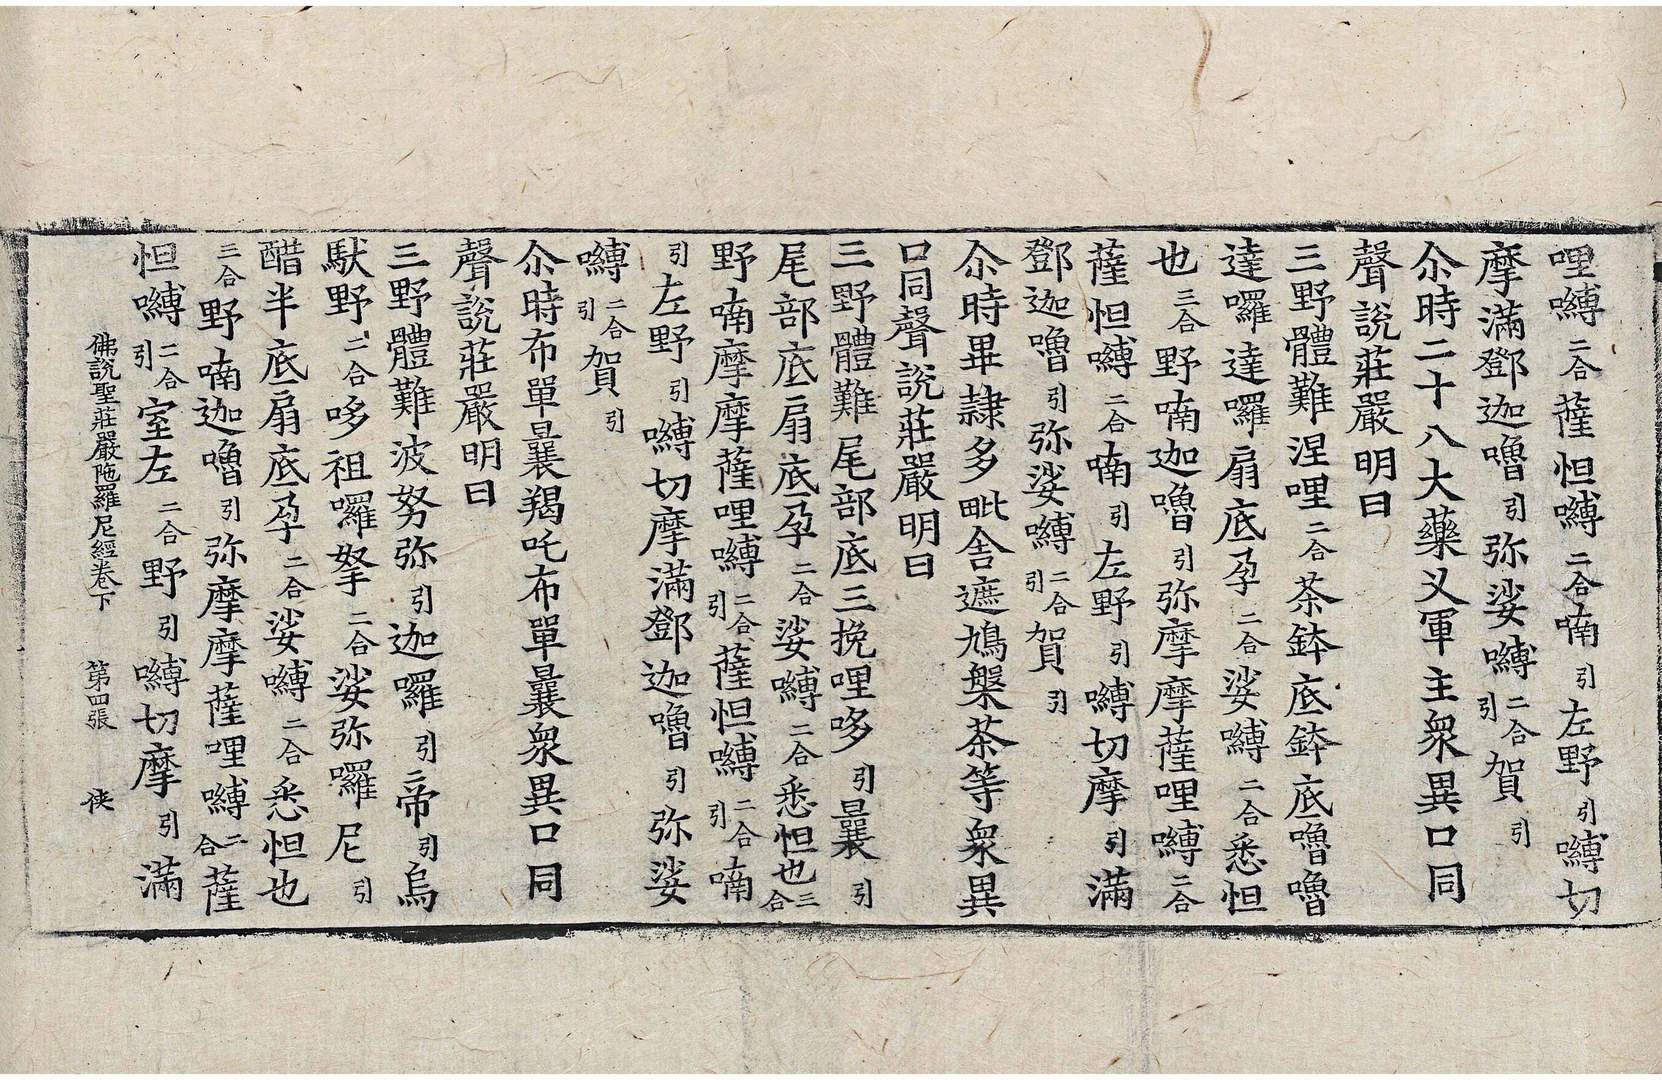 哩嚩二合薩怛嚩二合喃引左野引嚩切
摩滿鄧迦嚕引弥娑嚩二合引賀引
尒時二十八大藥叉軍主衆異口同
聲說莊嚴明曰
三野體難涅哩二合茶鉢底鉢底嚕嚕
達囉達囉扇底孕二合娑嚩二合悉怛
也三合野喃迦嚕引弥摩摩薩哩嚩二合
薩怛嚩二合喃引左野引嚩切摩引滿
鄧迦嚕引弥娑嚩二合引賀引
尒時畢隸多毗舍遮鳩槃茶等衆異
口同聲說莊嚴明曰
三野體難尾部底三挽哩哆引曩引
尾部底扇底孕二合娑嚩二合悉怛也三合
野喃摩摩薩哩嚩二合引薩怛嚩二合引喃
引左野引嚩切摩滿鄧迦嚕引弥娑
嚩二合引賀引
尒時布單曩羯吒布單曩衆異口同
聲說莊嚴明曰
三野體難波努弥引迦囉引帝引烏
馱野二合哆祖囉拏二合娑弥囉尼引
醋半底扇底孕二合娑嚩二合悉怛也
三合野喃迦嚕引弥摩摩薩哩嚩二合薩
怛嚩二合引室左二合野引嚩切摩引滿
佛說聖莊嚴陁羅尼經卷下 第四張 俠